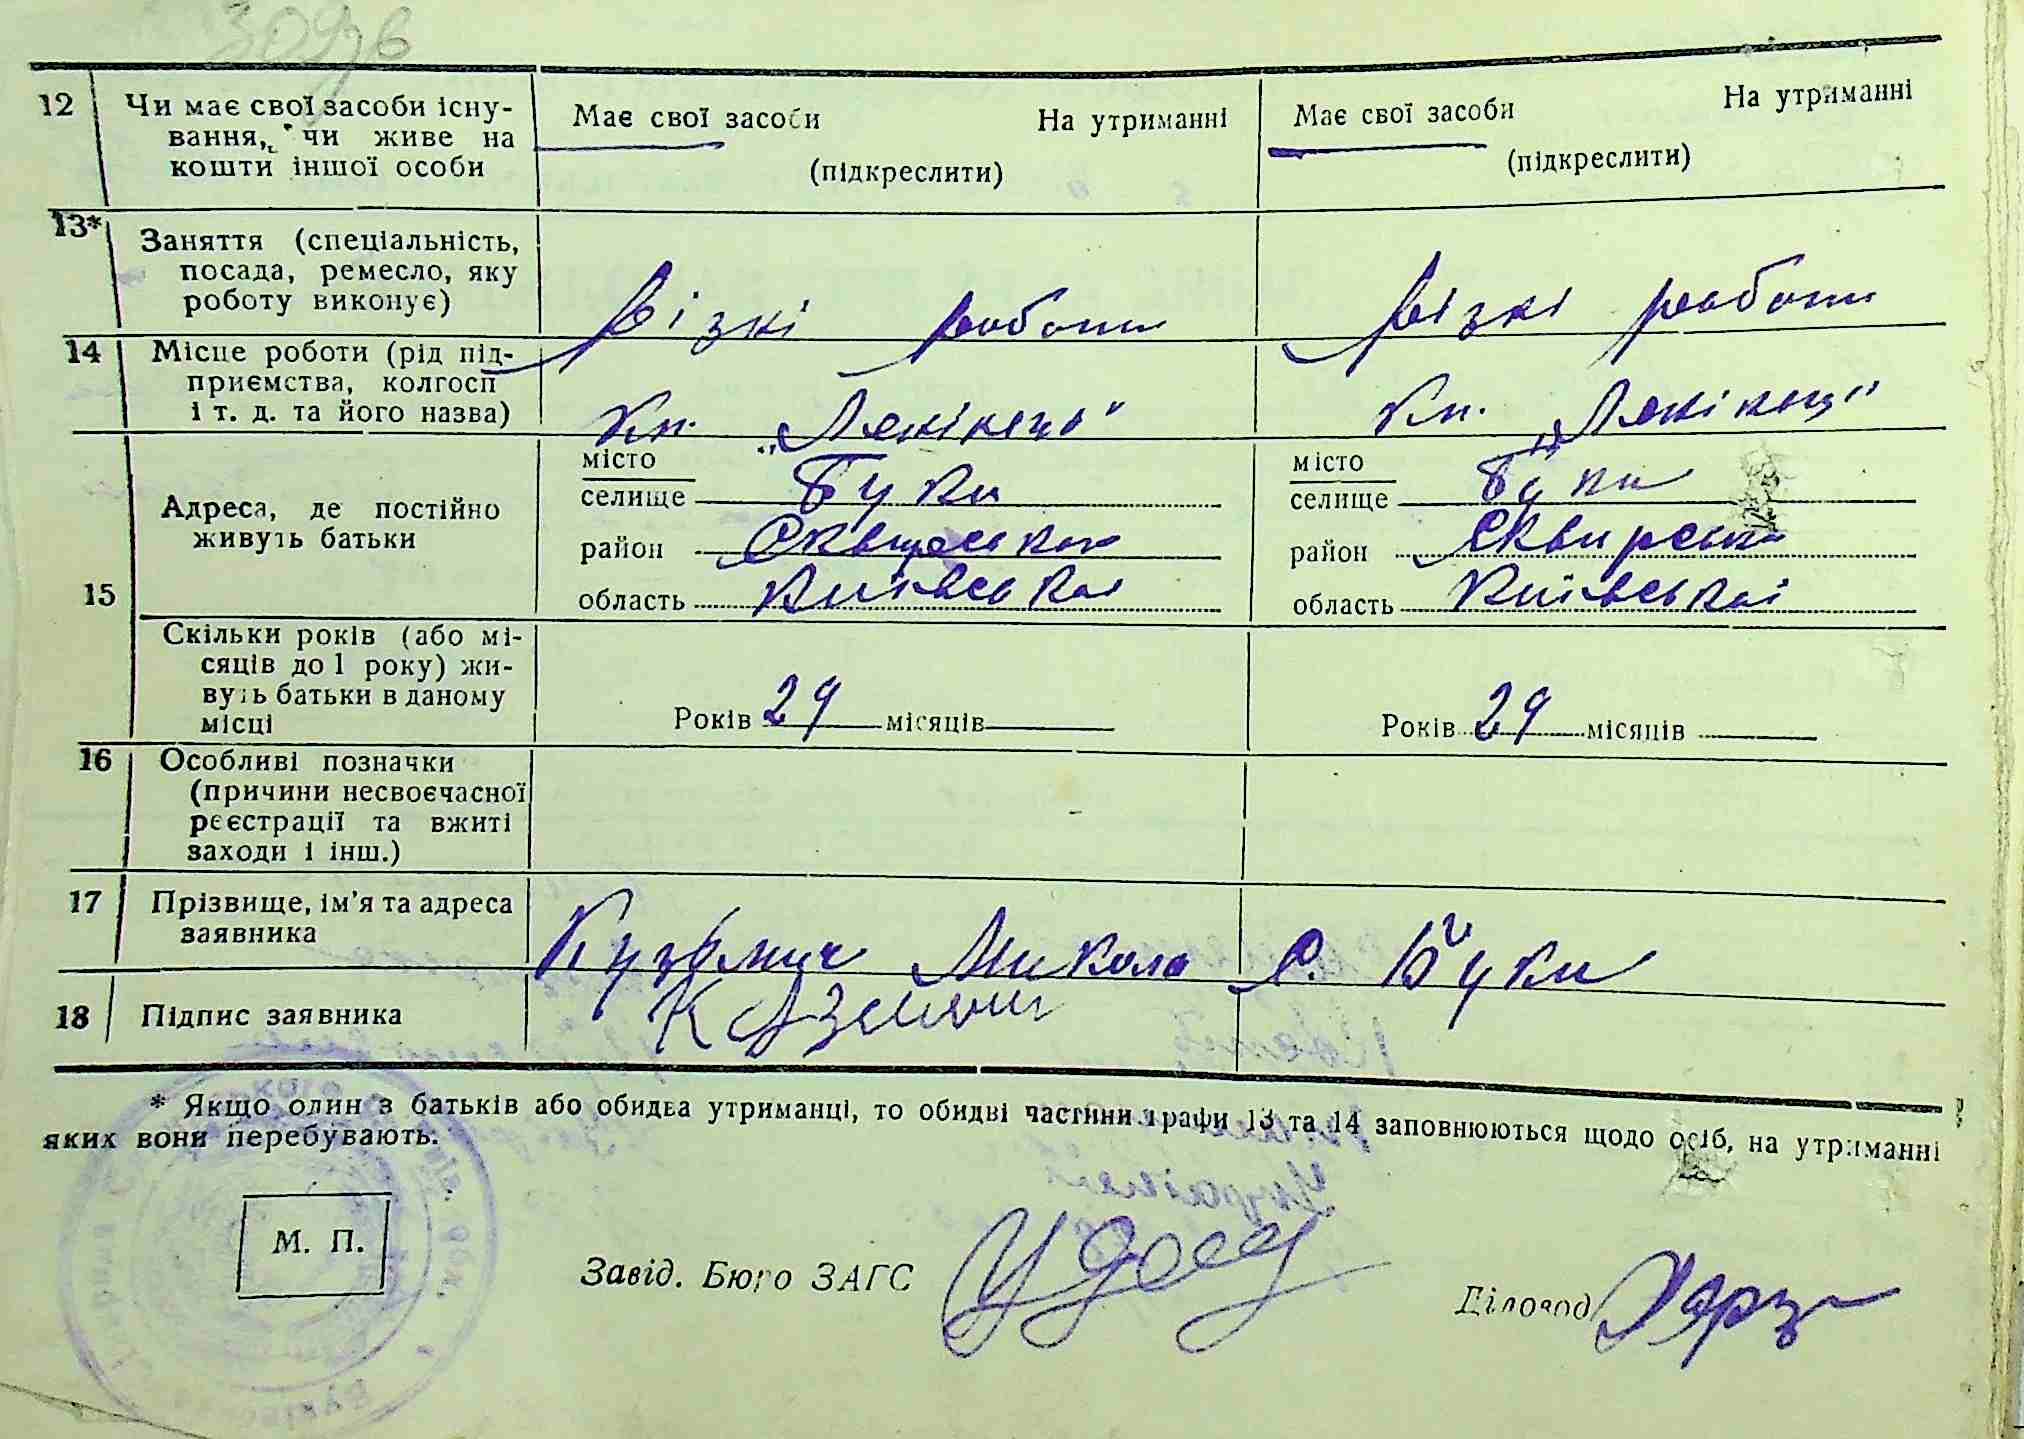 12 Чи має свої засоби існу-
вання, чи живе на
кошти іншої особи
Має свої засоби На утриманні
(підкреслити)
Має свої засоби На утриманні
(підкреслити)
13* Заняття (спеціальність,
посада, ремесло, яку
роботу виконує)
різкі роботи
різкі роботи
14 Місце роботи (рід під-
приємства, колгосп
і т. д. та його назва)
15
Адреса, де постійно
живуть батьки
місто
селище Буки
район Сквирського
область Київської
місто
селище Буки
район
область Київської
Скільки років (або мі-
сяців до 1 року) жи-
вуть батьки в даному
місці
Років 29 місяців
Років 29 місяців
16 Особливі позначки
(причини несвоєчасної
реєстрації та вжиті
заходи і інш.)
17 Прізвище, ім'я та адреса
заявника
Кузьмич Микола с. Буки
18 Підпис заявника
* Якщо один з батьків або обидва утриманці, то обидві частини графи 13 та 14 заповнюються щодо осіб, на утриманні
яких вони перебувають.
М. П.
Завід. Бюро ЗАГС
Діловод